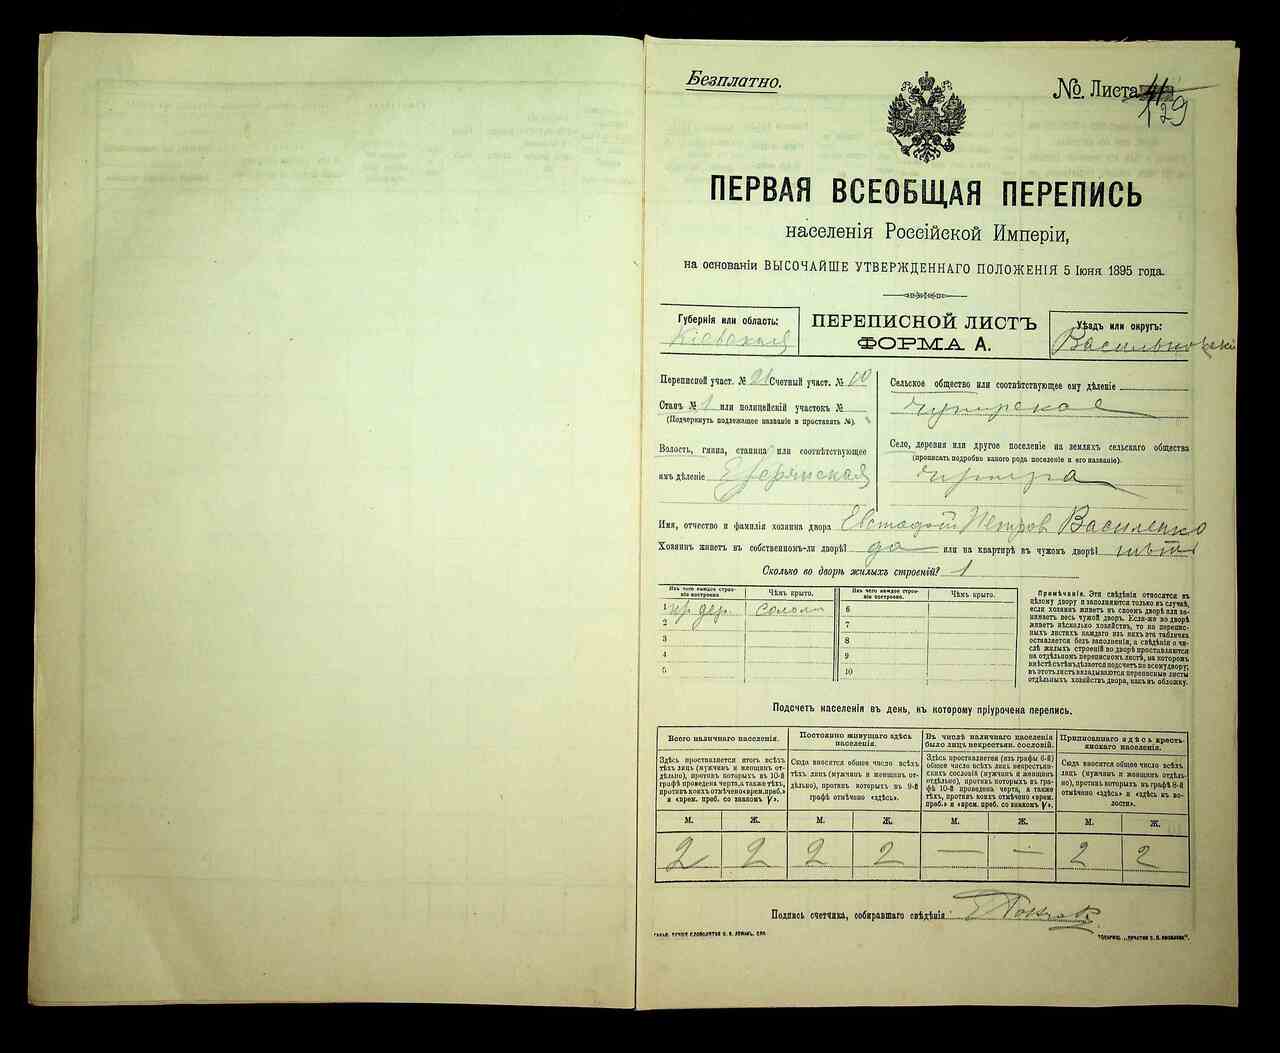 Безплатно.
№ Листа 129
ПЕРВАЯ ВСЕОБЩАЯ ПЕРЕПИСЬ
населенія Россійской Имперіи,
на основаніи ВЫСОЧАЙШЕ УТВЕРЖДЕННАГО ПОЛОЖЕНІЯ 5 Іюня 1895 года.
Губернія или область:
Кіевская
ПЕРЕПИСНОЙ ЛИСТЪ
ФОРМА А.
Уѣздъ или округъ:
Васильковскій
Переписной участ. № 21 Счетный участ. № 10
Станъ № 1 или полицейскій участокъ №
(Подчеркнуть подлежащее названіе и проставить №).
Волость, гмина, станица или соотвѣтствующее
имъ дѣленіе
Сельское общество или соотвѣтствующее ему дѣленіе
Село, деревня или другое поселеніе на земляхъ сельскаго общества
(прописать подробно какого рода поселеніе и его названіе).
Имя, отчество и фамилія хозяина двора Евстафій Петров Василенко
Хозяинъ живетъ въ собственномъ-ли дворѣ? да или на квартирѣ въ чужомъ дворѣ? нѣтъ
Сколько во дворѣ жилыхъ строеній? 1
Изъ чего каждое строеніе построено. Чѣмъ крыто. Изъ чего каждое строеніе построено. Чѣмъ крыто.
1 дер. солом 6
2 7
3 8
4 9
5 10
Примѣчанія. Эти свѣдѣнія относятся къ
цѣлому двору и заполняются только въ случаѣ,
если хозяинъ живетъ въ своемъ дворѣ или занимаетъ
весь чужой дворъ. Если-же во дворѣ
живетъ нѣсколько хозяйствъ, то на переписныхъ
листахъ каждаго изъ нихъ эта табличка
оставляется безъ заполненія, а свѣдѣнія о числѣ
жилыхъ строеній во дворѣ проставляются
на отдѣльномъ переписномъ листѣ, на которомъ
вмѣстѣ съ тѣмъ дѣлается подсчетъ по всему двору;
въ этотъ листъ вкладываются переписные листы
отдѣльныхъ хозяйствъ двора, какъ въ обложку.
Подсчетъ населенія въ день, къ которому пріурочена перепись.
Всего наличнаго населенія.
Здѣсь проставляется итогъ всѣхъ
тѣхъ лицъ (мужчинъ и женщинъ отдѣльно),
противъ которыхъ въ 10-й
графѣ проведена черта, а также тѣхъ,
противъ коихъ отмѣчено «врем. преб.»
и «врем. преб. со знакомъ V».
Постоянно живущаго здѣсь
населенія.
Сюда вносится общее число всѣхъ
тѣхъ лицъ (мужчинъ и женщинъ отдѣльно),
противъ которыхъ въ 9-й
графѣ отмѣчено «здѣсь».
Въ числѣ наличнаго населенія
было лицъ некрестьян. сословій.
Здѣсь проставляется (изъ графы 6-й)
общее число всѣхъ лицъ некрестьянскихъ
сословій (мужчинъ и женщинъ
отдѣльно), противъ которыхъ въ графѣ
10-й проведена черта, а также
тѣхъ, противъ коихъ отмѣчено «врем.
преб.» и «врем. преб. со знакомъ V».
Приписаннаго здѣсь крестьянскаго
населенія.
Сюда вносится общее число всѣхъ
лицъ (мужчинъ и женщинъ отдѣльно),
противъ которыхъ въ графѣ 8-й
отмѣчено «здѣсь» и «здѣсь въ волости».
М. Ж. М. Ж. М. Ж. М. Ж.
2 2 2 2 — — 2 2
Подпись счетчика, собиравшаго свѣдѣнія